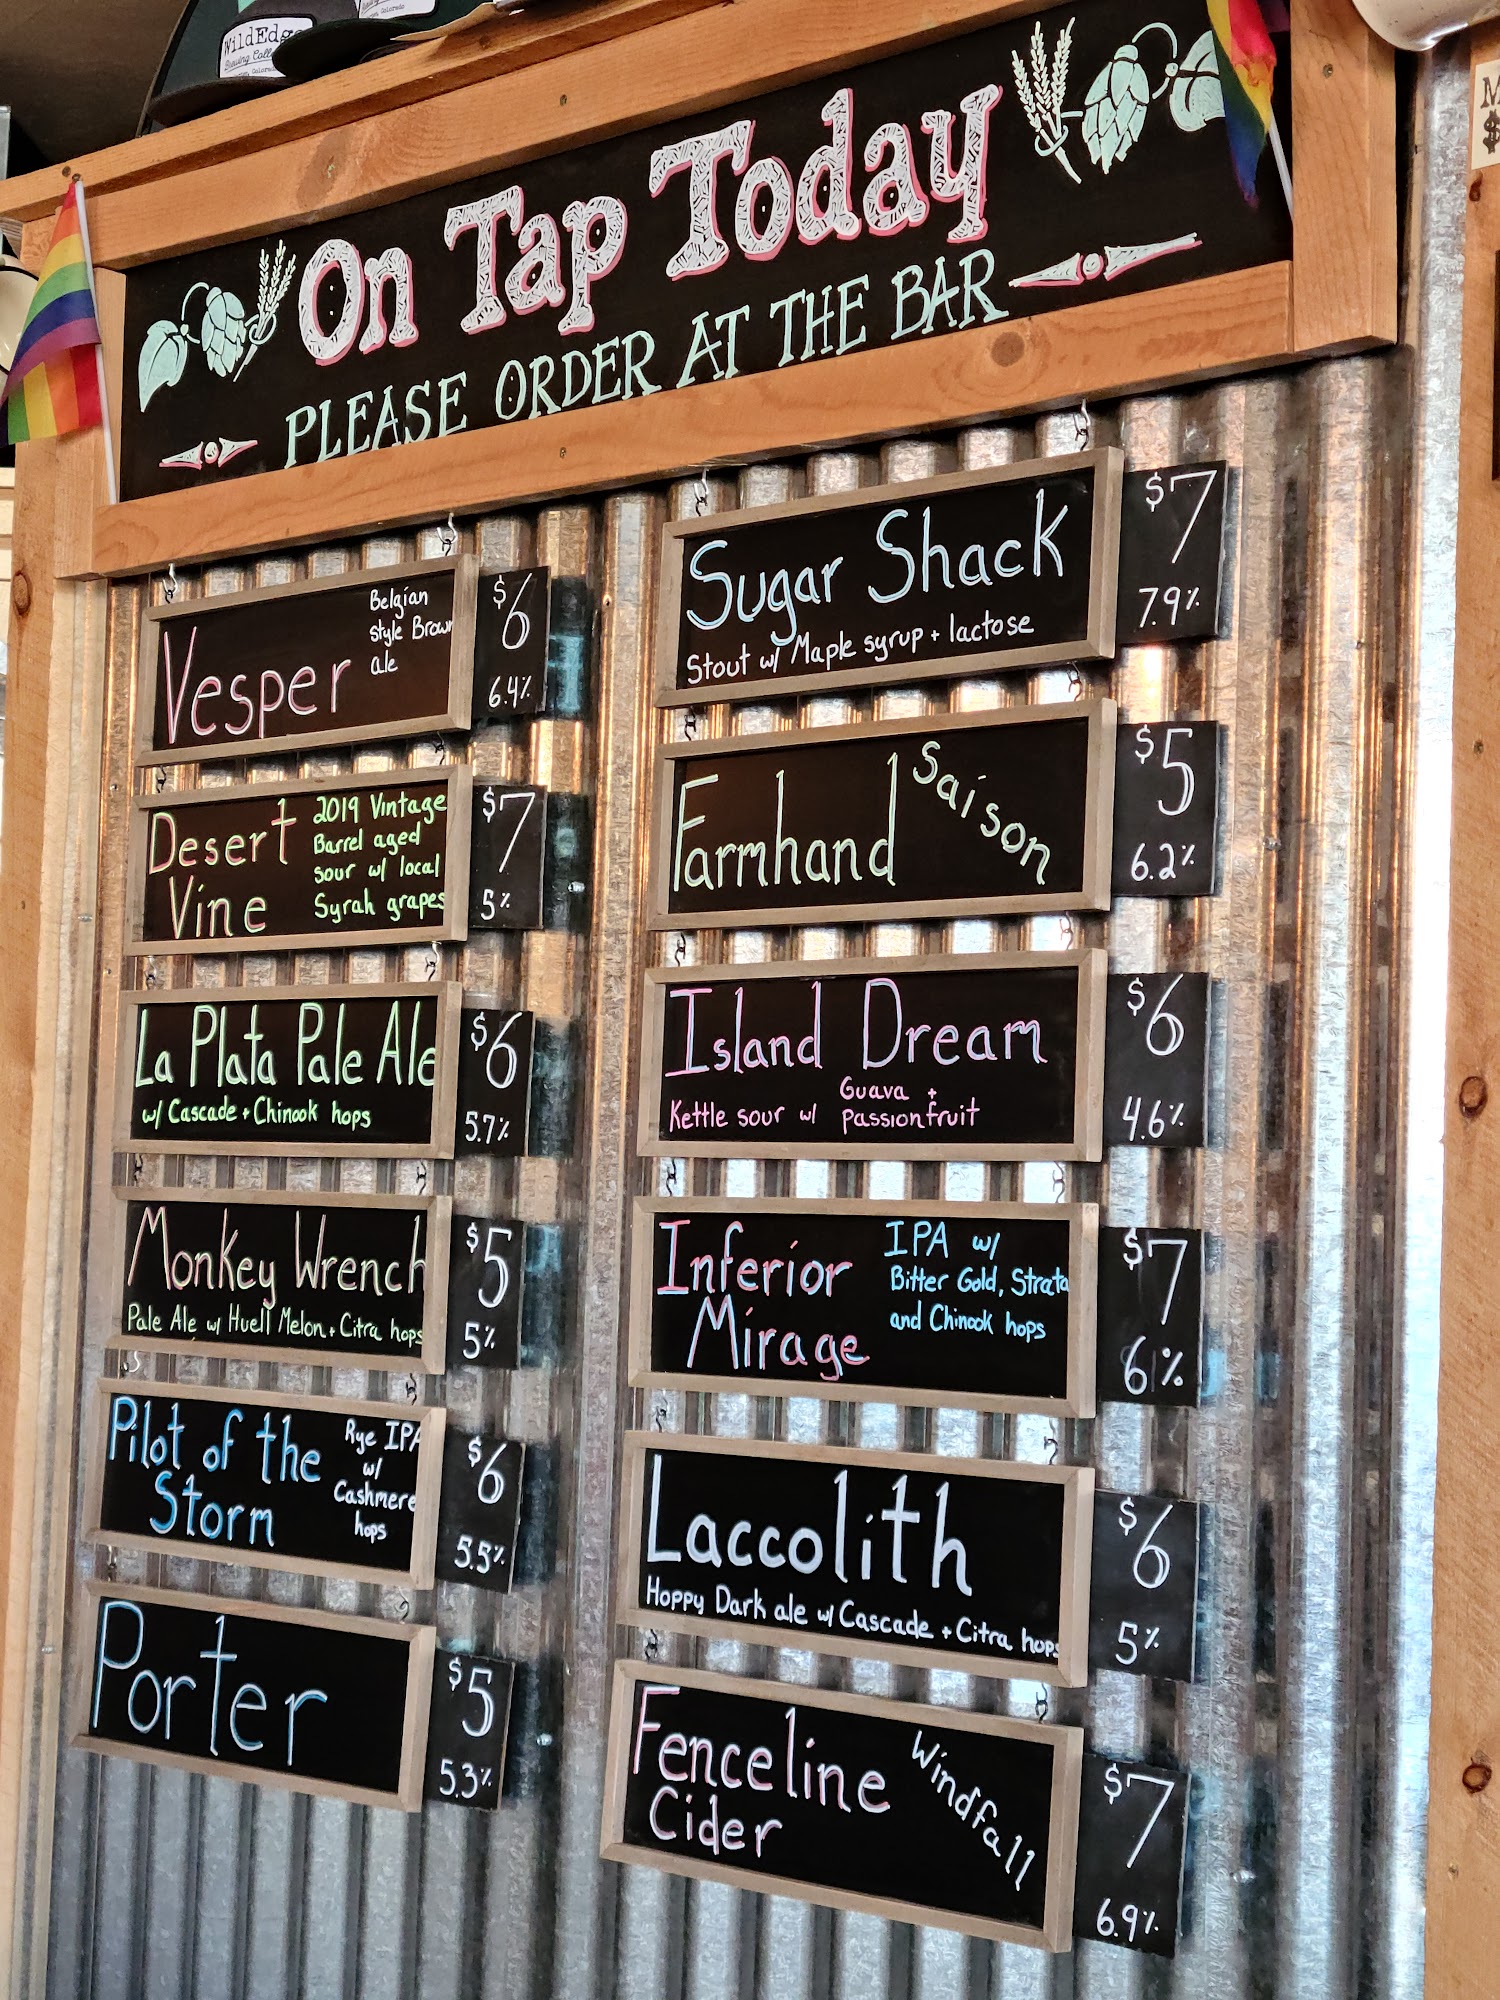 WildEdge
Brewing Colle
Colorado
On Tap Today
PLEASE ORDER AT THE BAR
Vesper
Belgian
style Brown
ale
$6
6.4%
Desert
Vine
2019 Vintage
Barrel aged
sour w/ local
Syrah grapes
$7
5%
La Plata Pale Ale
w/ Cascade + Chinook hops
$6
5.7%
Monkey Wrench
Pale Ale w/ Huell Melon + Citra hops
$5
5%
Pilot of the
Storm
Rye IPA
w/
Cashmere
hops
$6
5.5%
Porter
$5
5.3%
Sugar Shack
Stout w/ Maple syrup + lactose
$7
7.9%
Farmhand
Saison
$5
6.2%
Island Dream
Kettle sour w/ Guava +
passionfruit
$6
4.6%
Inferior
Mirage
IPA w/
Bitter Gold, Strata
and Chinook hops
$7
6%
Laccolith
Hoppy Dark ale w/ Cascade + Citra hops
$6
5%
Fenceline
Cider
Windfall
$7
6.9%
M
$